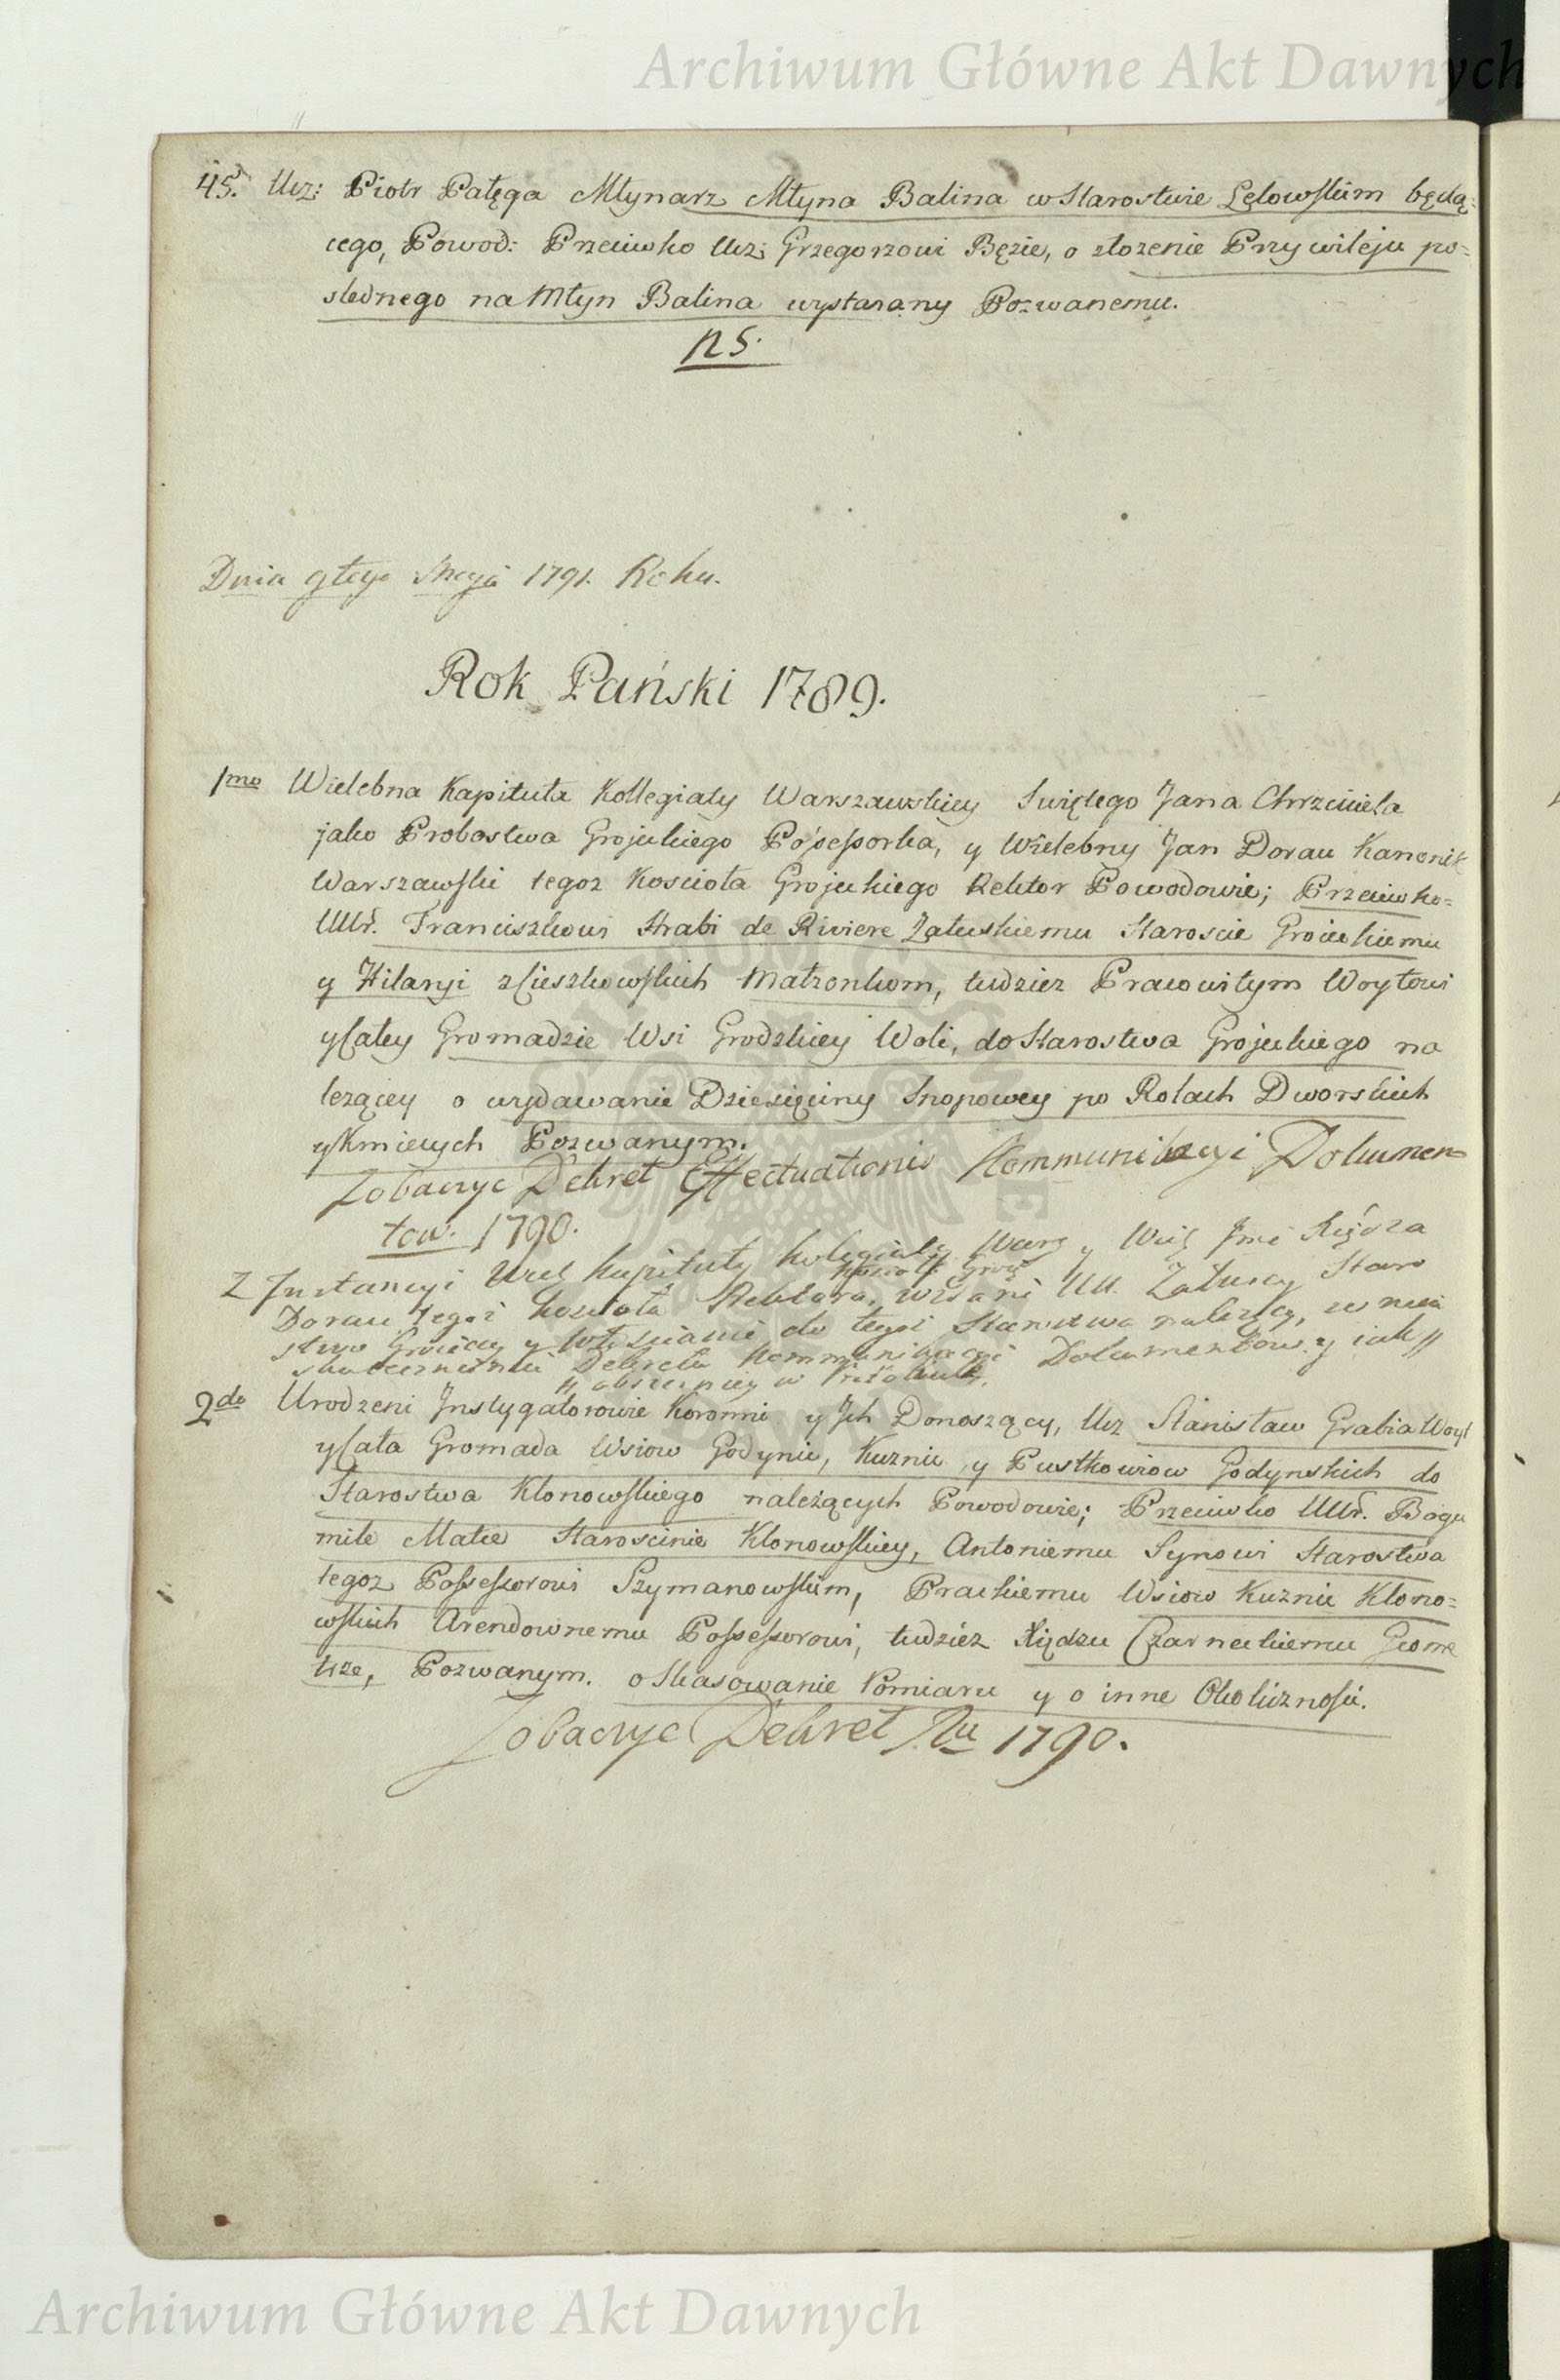 Archiwum Główne Akt Dawnych
45. Ucz: Piotr Pałęga Młynarz Młyna Balina w Starostwie Lelowskim będą-
cego, Powod: Przeciwko Ucz: Grzegorzowi Bęzie, o złozenie Przywileju po-
slednego na Młyn Balina wystarany Pozwanemu.
ns.
Dnia 9tego Maja 1791. Roku.
Rok Pański 1789.
1mo Wielebna Kapituła Kollegiaty Warszawskiey Swiętego Jana Chrzciciela
jako Probostwa Grojeckiego Possessorka, y Wielebny Jan Dorau Kanonik
Warszawski tegoz Koscioła Grojeckiego Rektor Powodowie; Przeciwko-
UUr. Franciszkowi Hrabi de Riviere Załuskiemu Staroscie Grojeckiemu
y Hilaryi z Cieszkowskich Matzonkom, tudziez Prawowitym Woytowi
y Całey Gromadzie Wsi Grodzkiey Woli, do Starostwa Grojeckiego na
lezącey o wydawanie Dziesięciny Snopowey po Rolach Dworskich
y Kmiecych Pozwanym.
Zobaczyc Dekret Effectuationis Kommunikacyi Dokumen-
tow. 1790.
Z Instancyi Wiel Kapituły Kolegiaty Wars y Wiel Jmci Xiędza
Dorau tegoż Koscioła Rektora, UU. Załuscy Staro
y Włoscianie do tegoż Starostwa należący,
Dekretu Kommunikacyi Dokumentow. y
obszerniey w
2do Urodzeni Instygatorowie Koronni y Jch Donoszący, Ucz Stanisław Grabia Woyt
y Cała Gromada Wsiow Godynic, Kuznic y Pustkowiow Godynskich do
Starostwa Klonowskiego należących Powodowie; Przeciwko UUr. Bogu
mile Matce Starościnie Klonowskiey, Antoniemu Synowi Starostwa
tegoz Possessorowi Szymanowskim, Prackiemu Wsiow Kuznic Klono-
wskich Arendownemu Possessorowi, tudziez Xiędzu Czarneckiemu Geome
trze, Pozwanym. o Skasowanie Pomiaru y o inne Okolicznosci.
Zobaczyc Dekret Ru 1790.
Archiwum Główne Akt Dawnych